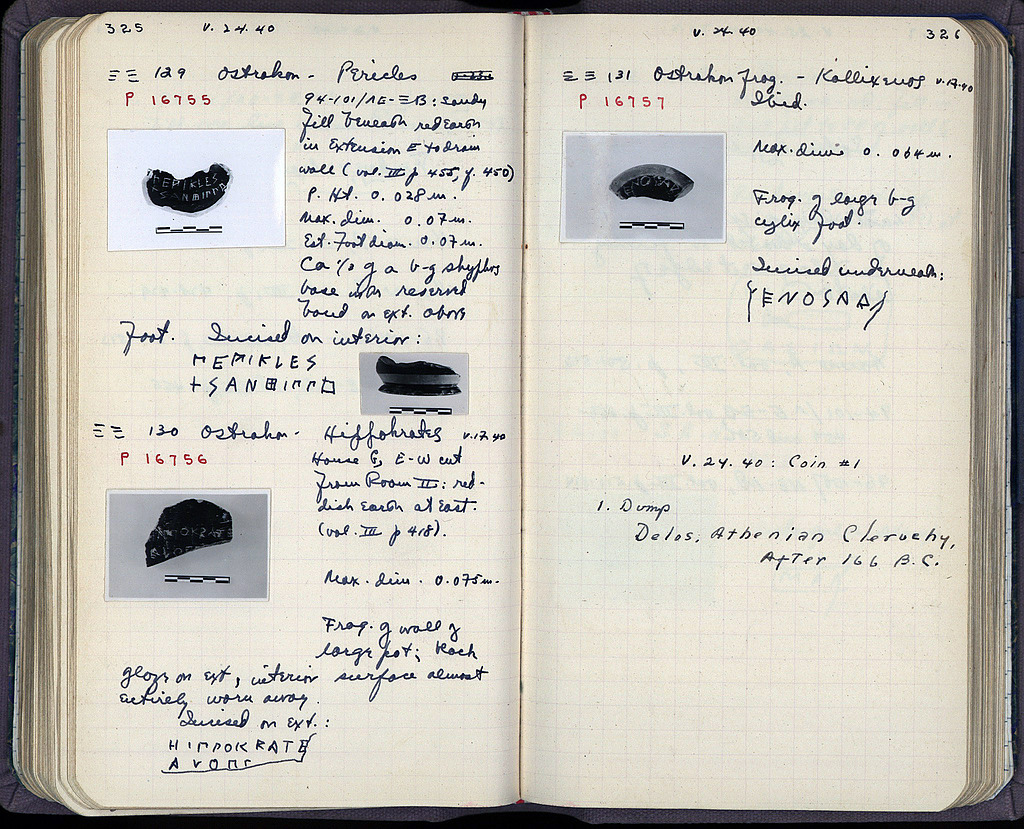 325 V. 24. 40
ΞΞ 129 Ostrakon - Pericles
P 16755
94-101/ΛΕ-ΞΒ: sandy
fill beneath red earth
in Extension E to drain
wall (vol. III p 455, 450)
P. Ht. 0.028 m.
Max. dim. 0.07 m.
Est. Foot diam. 0.07 m.
Ca ½ of a b-g skyphos
base with reserved
band on ext. above
foot. Incised on interior:
ΠΕΡΙΚLΕS
+SΑΝΘΙΠΠΟ
ΞΞ 130 Ostrakon - Hippokrates V.17.40
P 16756
House G, E-W cut
from Room II: red-
dish earth at East.
(vol. III p 418).
Max. dim. 0.075 m.
Frag. of wall of
large pot; black
glaze on ext, interior surface almost
entirely worn away.
Incised on ext.:
ΗΙΠΠΟΚRΑΤΕ
V. 24. 40 326
ΞΞ 131 Ostrakon frag. - Kallixenos V.17.40
P 16757
Ibid.
Max. dim. 0.064 m.
Frag. of large b-g
cylix foot.
Incised underneath:
ΕΝΟS
V. 24. 40: Coin #1
1. Dump
Delos, Athenian Cleruchy,
After 166 B.C.